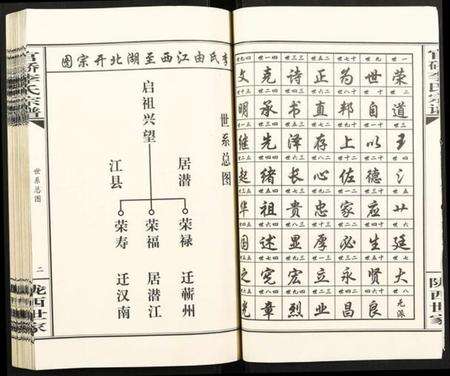 官桥李氏宗谱
陇西世家
荣道王氵廿廷大元派
世自以德应生贤良
为邦上佐家必永昌
正直存心忠厚立业
诗书泽长贵显宏烈
克承先绪祖述宪章
文明继起华国之光
李氏由江西至湖北开宗图
世系总图
启祖兴望
居潜
江县
荣禄 迁蕲州
荣福 居潜江
荣寿 迁汉南
官桥李氏宗谱
世系总图
二
陇西世家